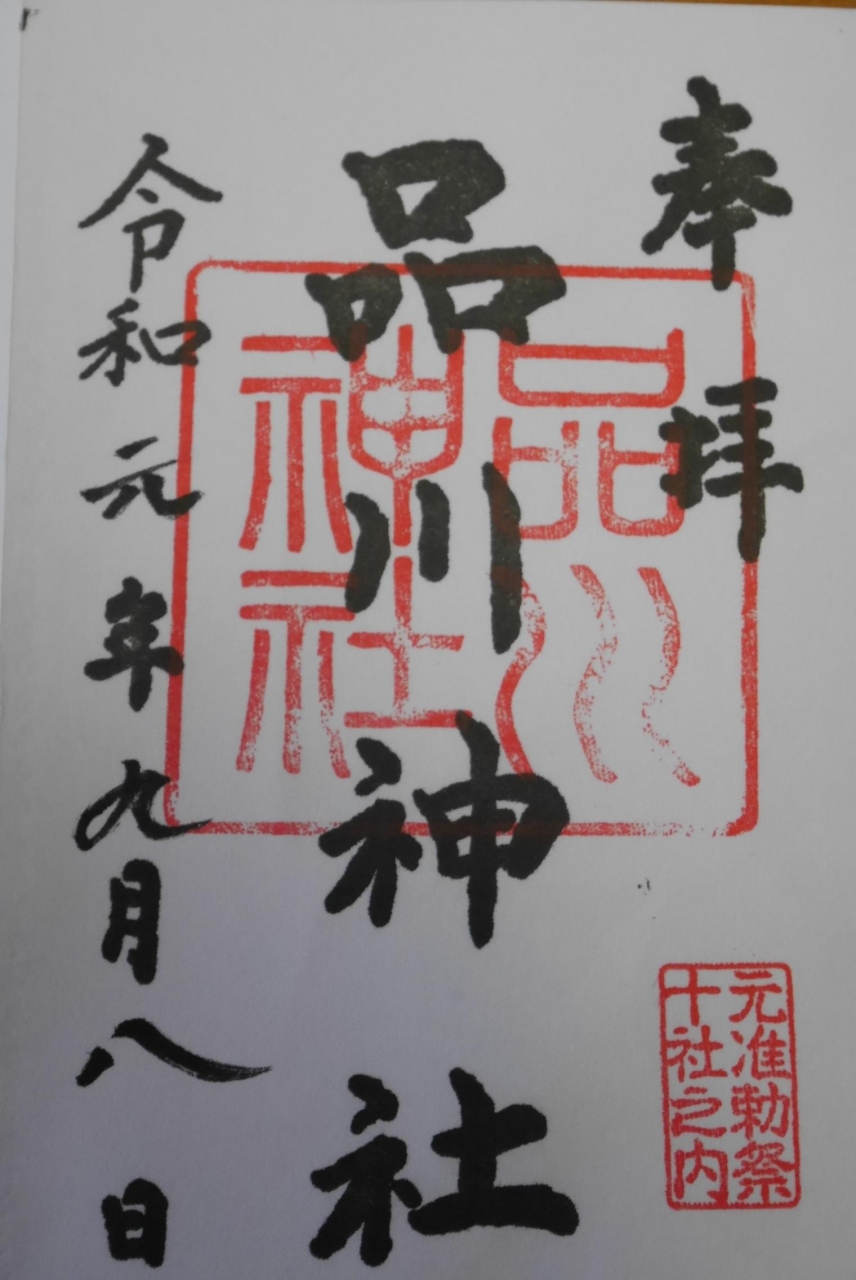 奉拝
元准勅祭
十社之内
品川神社
品川
神社
令和元年九月八日